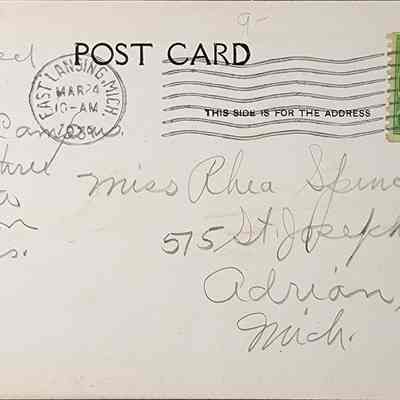 9-
POST CARD
EAST LANSING, MICH.
MAR 24
10-AM
THIS SIDE IS FOR THE ADDRESS
Campus.
Miss Rhea Spinc
575 St. Joseph
Adrian,
Mich.